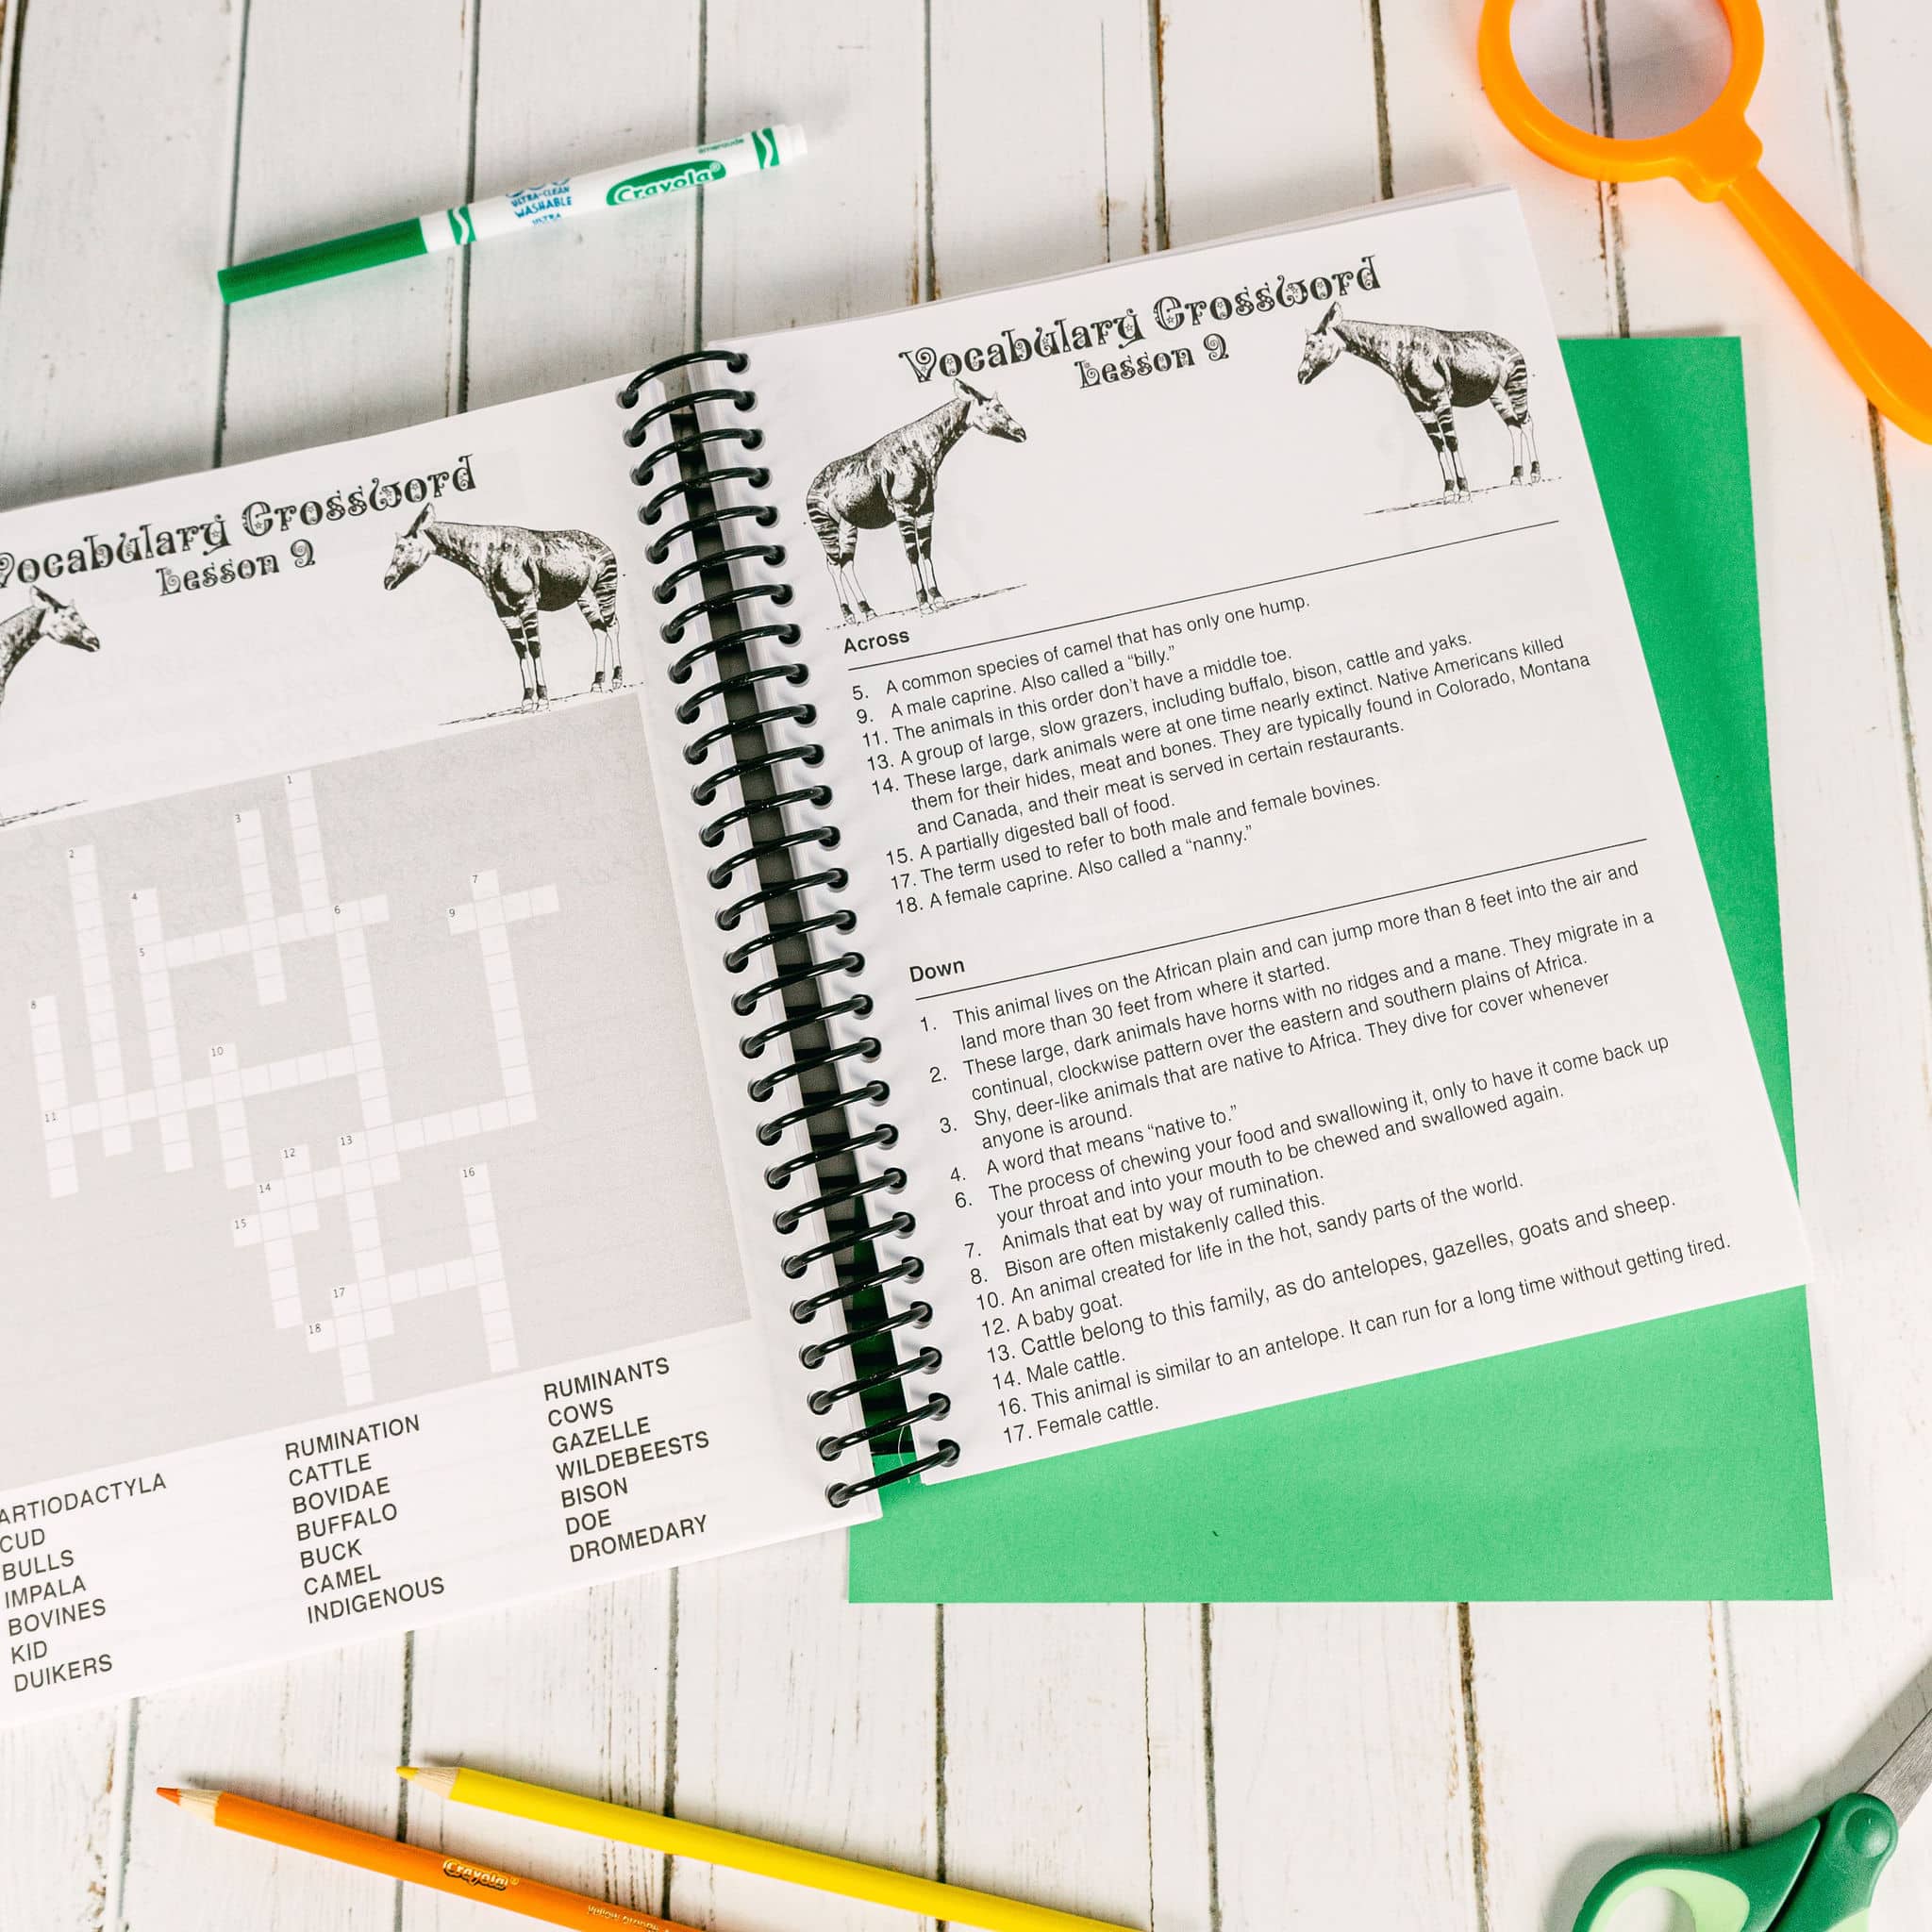 Crayola
ULTRA-CLEAN
WASHABLE
ULTRA
Vocabulary Crossword
Lesson 2
1
2
3
4
5
6
7
8
9
10
11
12
13
14
15
16
17
18
ARTIODACTYLA
CUD
BULLS
IMPALA
BOVINES
KID
DUIKERS
RUMINATION
CATTLE
BOVIDAE
BUFFALO
BUCK
CAMEL
INDIGENOUS
RUMINANTS
COWS
GAZELLE
WILDEBEESTS
BISON
DOE
DROMEDARY
Vocabulary Crossword
Lesson 2
Across
5. A common species of camel that has only one hump.
9. A male caprine. Also called a “billy.”
11. The animals in this order don’t have a middle toe.
13. A group of large, slow grazers, including buffalo, bison, cattle and yaks.
14. These large, dark animals were at one time nearly extinct. Native Americans killed
them for their hides, meat and bones. They are typically found in Colorado, Montana
and Canada, and their meat is served in certain restaurants.
15. A partially digested ball of food.
17. The term used to refer to both male and female bovines.
18. A female caprine. Also called a “nanny.”
Down
1. This animal lives on the African plain and can jump more than 8 feet into the air and
land more than 30 feet from where it started.
2. These large, dark animals have horns with no ridges and a mane. They migrate in a
continual, clockwise pattern over the eastern and southern plains of Africa.
3. Shy, deer-like animals that are native to Africa. They dive for cover whenever
anyone is around.
4. A word that means “native to.”
6. The process of chewing your food and swallowing it, only to have it come back up
your throat and into your mouth to be chewed and swallowed again.
7. Animals that eat by way of rumination.
8. Bison are often mistakenly called this.
10. An animal created for life in the hot, sandy parts of the world.
12. A baby goat.
13. Cattle belong to this family, as do antelopes, gazelles, goats and sheep.
14. Male cattle.
16. This animal is similar to an antelope. It can run for a long time without getting tired.
17. Female cattle.
Crayola